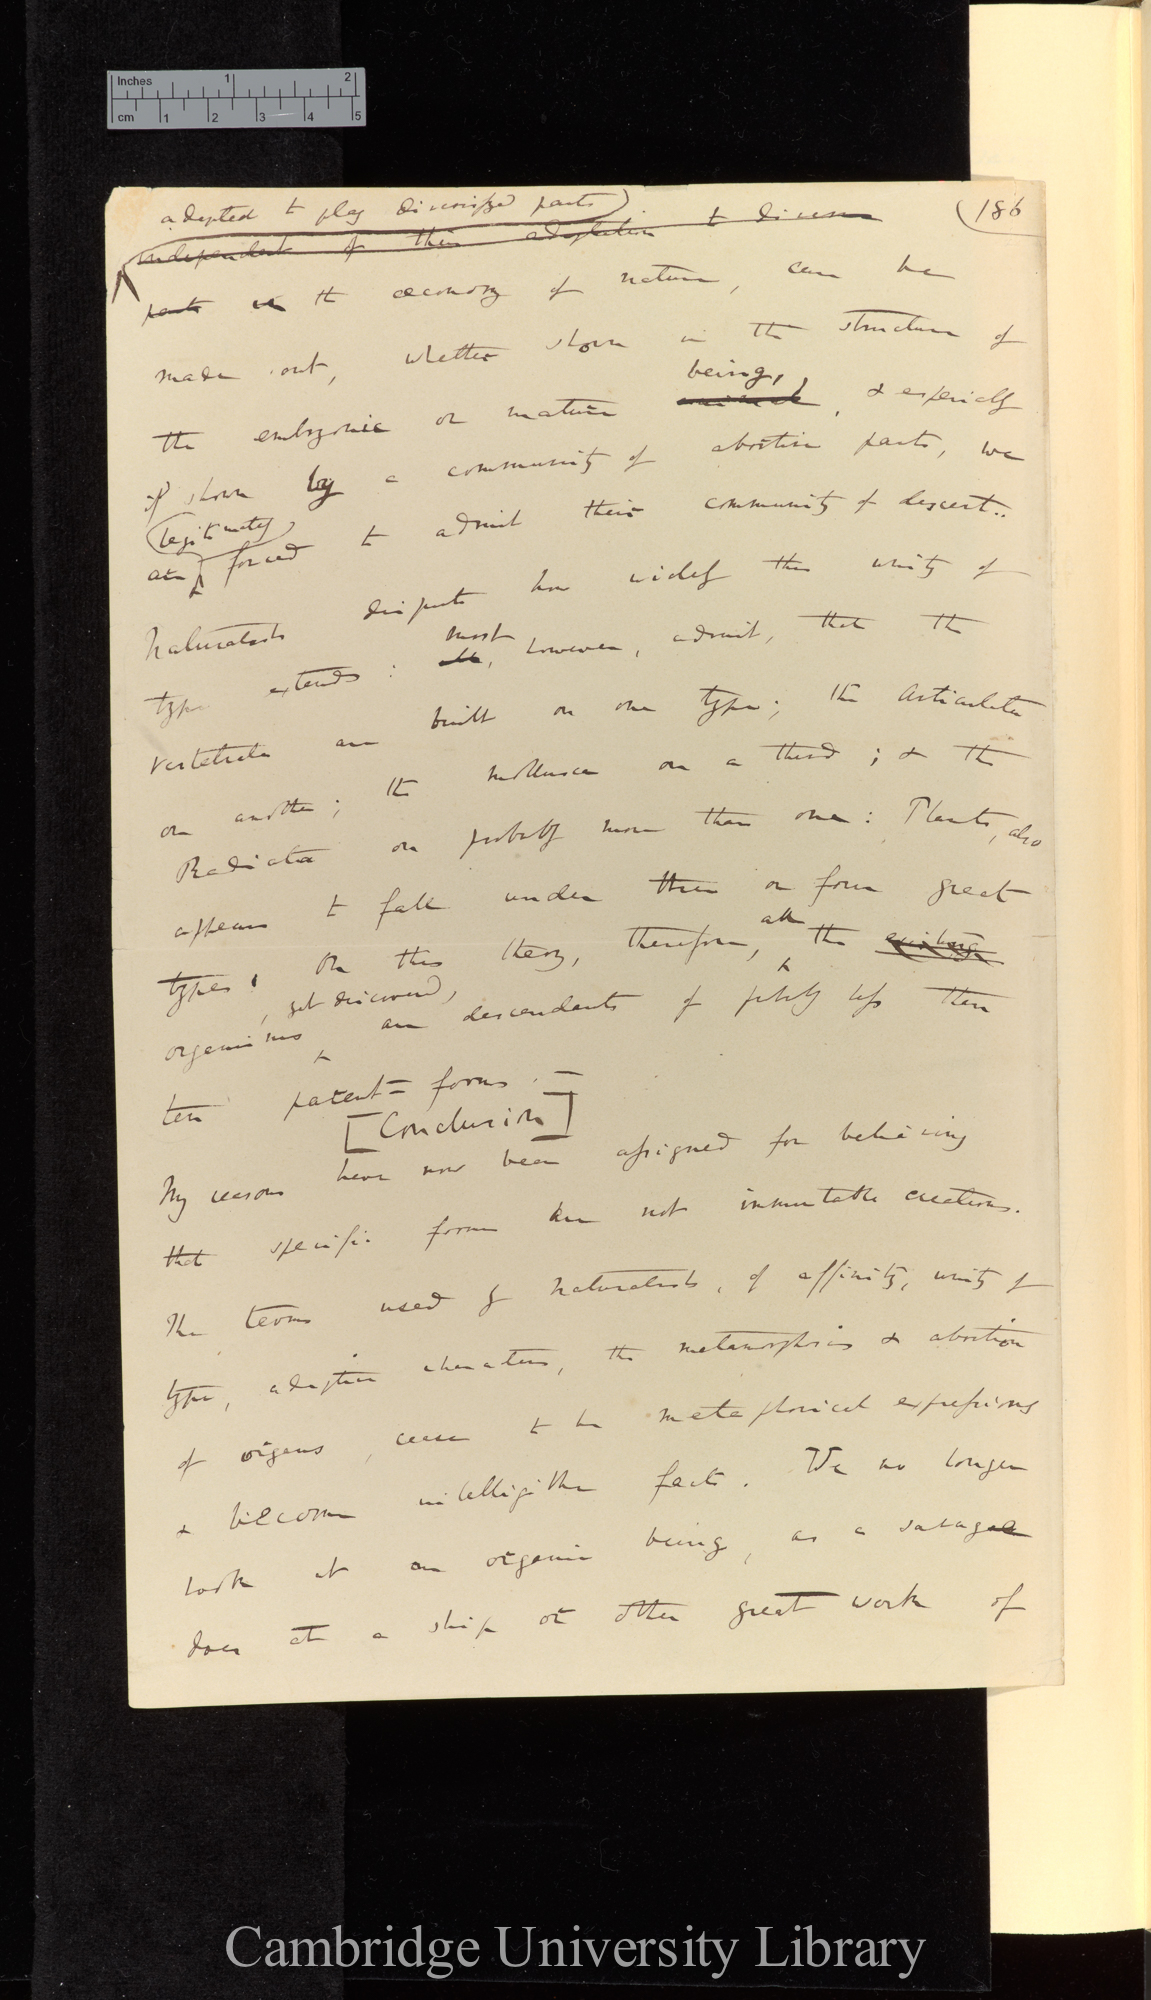 Inches 1 2
cm 1 2 3 4 5
186
adapted to play diversified parts
independent of their adaptation to diverse
parts in the œconomy of nature, can be
made out, whether shown in the structure of
being,
the embryonic or mature animal, & especially
if shown by a community of abortive parts, we
legitimately
are forced to admit their community of descent.
Naturalists dispute how widely this unity of
most
type extends: all, however, admit, that the
vertebrata are built on one type; the articulata
on another; the mollusca on a third; & the
Radiata on probably more than one: Plants, also
appear to fall under three or four great
all
types. On this theory, therefore, the existing
, yet discovered,
organisms are descendants of probably less than
ten parent-forms. —
[Conclusion]
My reasons have now been assigned for believing
that specific forms are not immutable creations.
The terms used by naturalists, of affinity, unity of
type, adaptive characters, the metamorphosis & abortion
of organs, cease to be metaphorical expressions
& become intelligible facts. We no longer
look at an organic being, as a savage
does at a ship or other great work of
Cambridge University Library